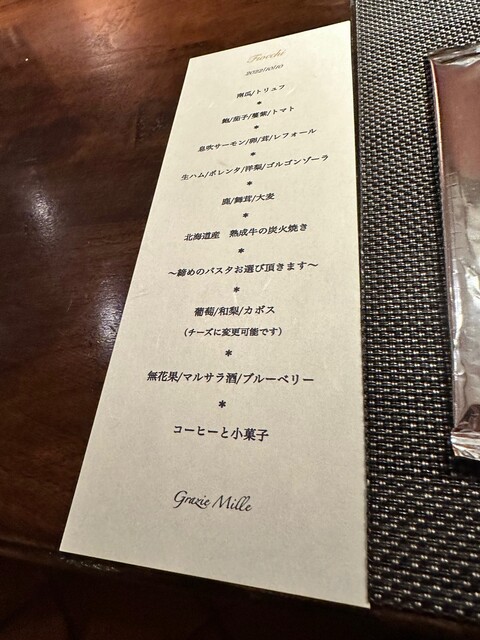 Fiocchi
2022/10/10
南瓜/トリュフ
*
鮑/茄子/蓴菜/トマト
*
息吹サーモン/卵/茸/レフォール
*
生ハム/ポレンタ/洋梨/ゴルゴンゾーラ
*
鹿/舞茸/大麦
*
北海道産 熟成牛の炭火焼き
*
〜締めのパスタお選び頂きます〜
*
葡萄/和梨/カボス
(チーズに変更可能です)
*
無花果/マルサラ酒/ブルーベリー
*
コーヒーと小菓子
Grazie Mille